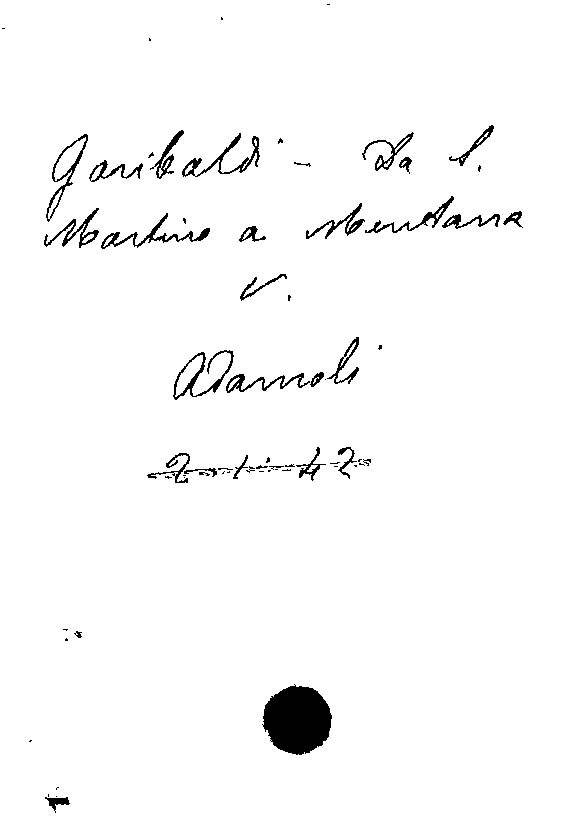 Garibaldi - Da S.
Martino a Mentana
V.
Adamoli
2 - 1 - 42